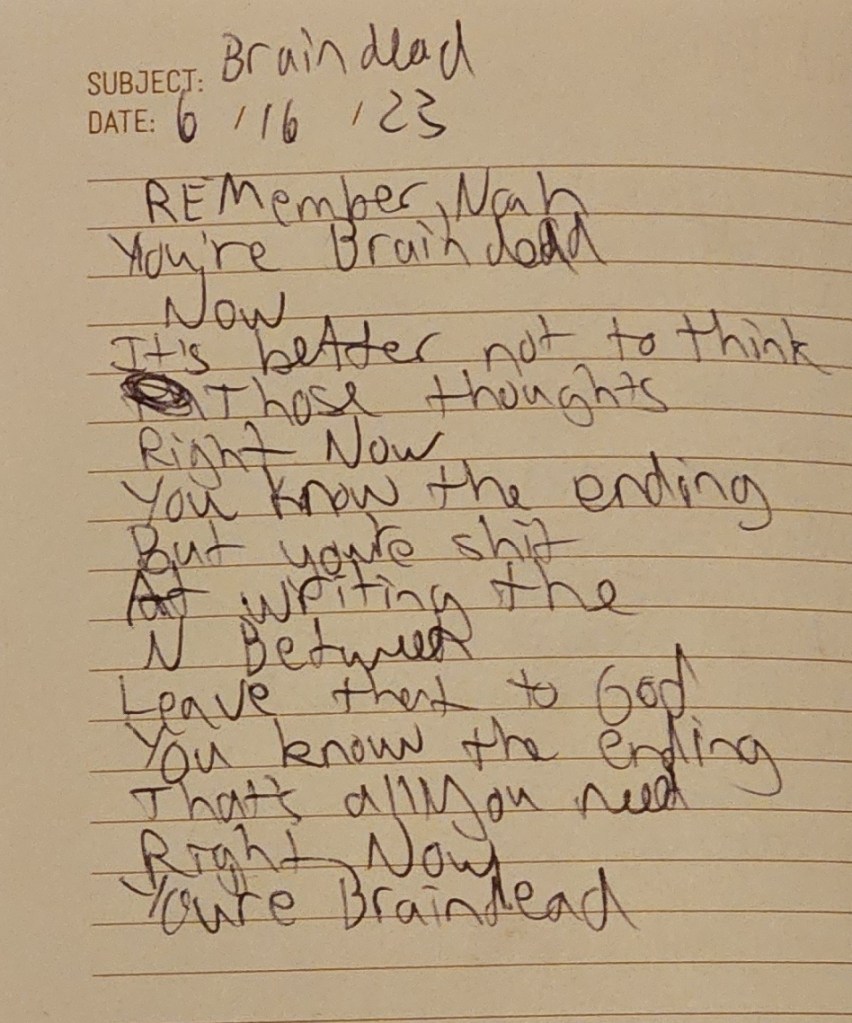 SUBJECT: Braindead
DATE: 6 / 16 / 23
REMember, Noah
You're Braindead
Now
It's better not to think
Those thoughts
Right Now
You know the ending
But you're shit
At writing the
N Between
Leave that to God
You know the ending
That's all you need
Right Now
Youre Braindead